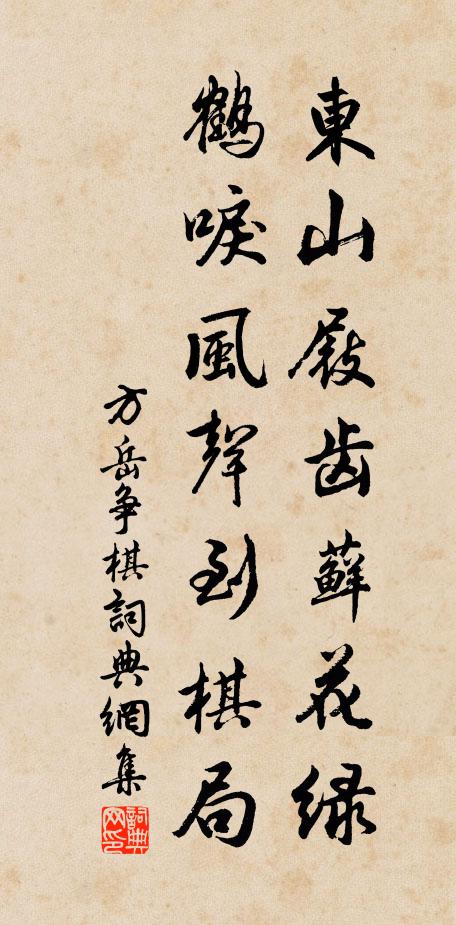 東山屐齒蘚花緑
鶴唳風聲到棋局
方岳争棋詞典網集
詞典网印